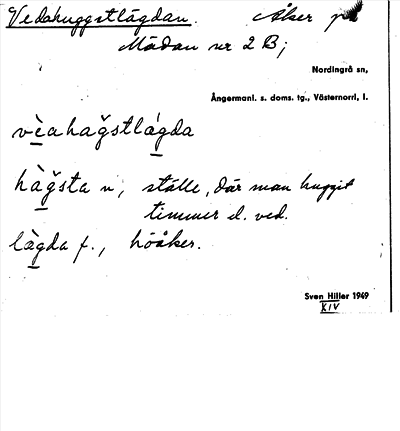 Vedahuggstlägdan. Åker på
Mädan nr 2 B;
Nordingrå sn,
Ångermanl. s. doms. tg., Västernorrl. l.
vèahag̃stlágda
hàg̃sta n; ställe, där man huggit
timmer el. ved.
làgda f., höåker.
Sven Hiller 1949
XIV